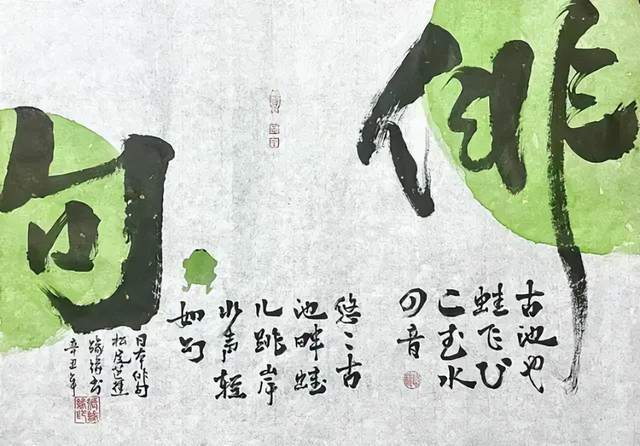 俳句
古池や
蛙飞び
こむ水
の音
悠々古
池畔蛙
儿跳岸
水声轻
如幻
日本俳句
松尾芭蕉
书
辛丑年